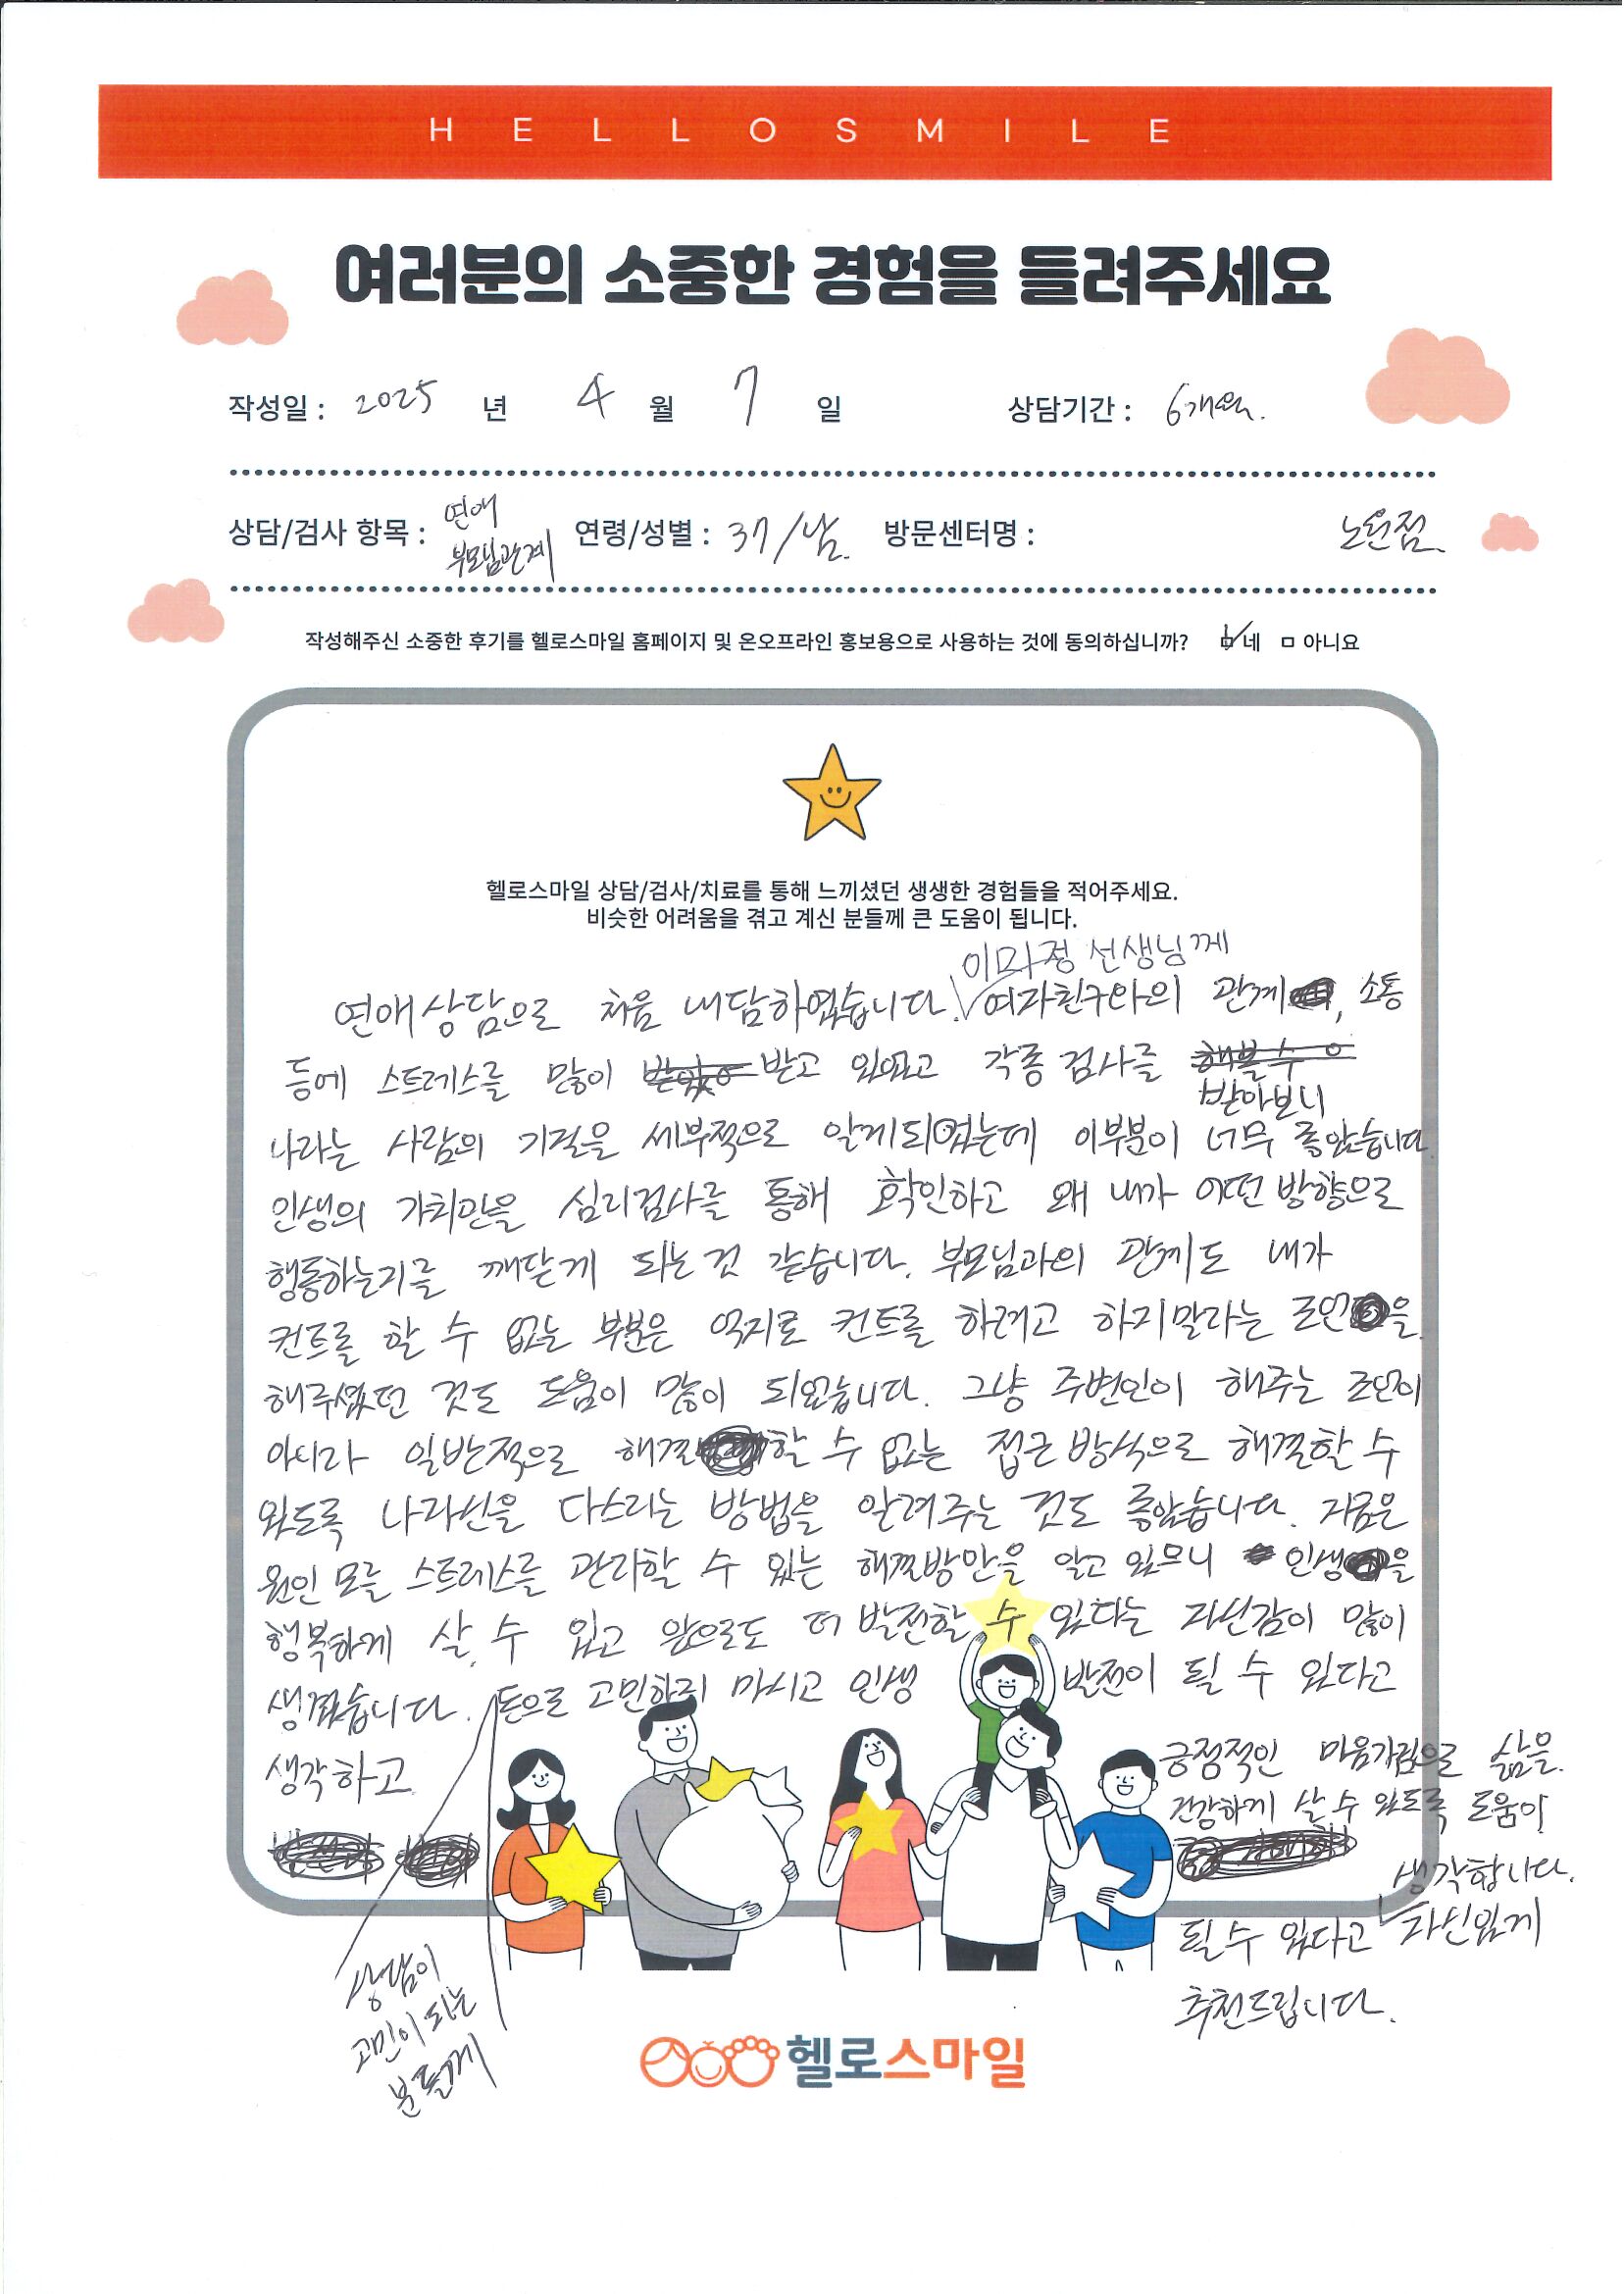 HELLOSMILE
여러분의 소중한 경험을 들려주세요
작성일 : 2025 년 4 월 7 일 상담기간 : 6개월.
상담/검사 항목 : 연애 부모님관계 연령/성별 : 37/남. 방문센터명 : 노원점.
작성해주신 소중한 후기를 헬로스마일 홈페이지 및 온오프라인 홍보용으로 사용하는 것에 동의하십니까? 네 아니요
헬로스마일 상담/검사/치료를 통해 느끼셨던 생생한 경험들을 적어주세요.
비슷한 어려움을 겪고 계신 분들께 큰 도움이 됩니다.
이미정 선생님께
연애상담으로 처음 내담하였습니다. 여자친구와의 관계, 소통
등에 스트레스를 많이 받고 있었고 각종 검사를
받아보니
나라는 사람의 기질을 세부적으로 알게되었는데 이부분이 너무 좋았습니다
인생의 가치관을 심리검사를 통해 확인하고 왜 내가 어떤 방향으로
행동하는지를 깨닫게 되는 것 같습니다. 부모님과의 관계도 내가
컨트롤 할 수 없는 부분은 억지로 컨트롤 하려고 하지말라는 조언을
해주셨던 것도 도움이 많이 되었습니다. 그냥 주변인이 해주는 조언이
아니라 일반적으로 해결할 수 없는 접근 방식으로 해결할 수
있도록 나자신을 다스리는 방법을 알려주는 것도 좋았습니다. 지금은
원인 모를 스트레스를 관리할 수 있는 해결방안을 알고 있으니 인생을
행복하게 살 수 있고 앞으로도 더 발전할 수 있다는 자신감이 많이
생겼습니다. 돈으로 고민하지 마시고 인생 발전이 될 수 있다고
생각하고 긍정적인 마음가짐으로 삶을.
건강하게 살 수 있도록 도움이
생각합니다.
될 수 있다고 자신있게
추천드립니다.
상담이
고민이 되는
분들께
헬로스마일